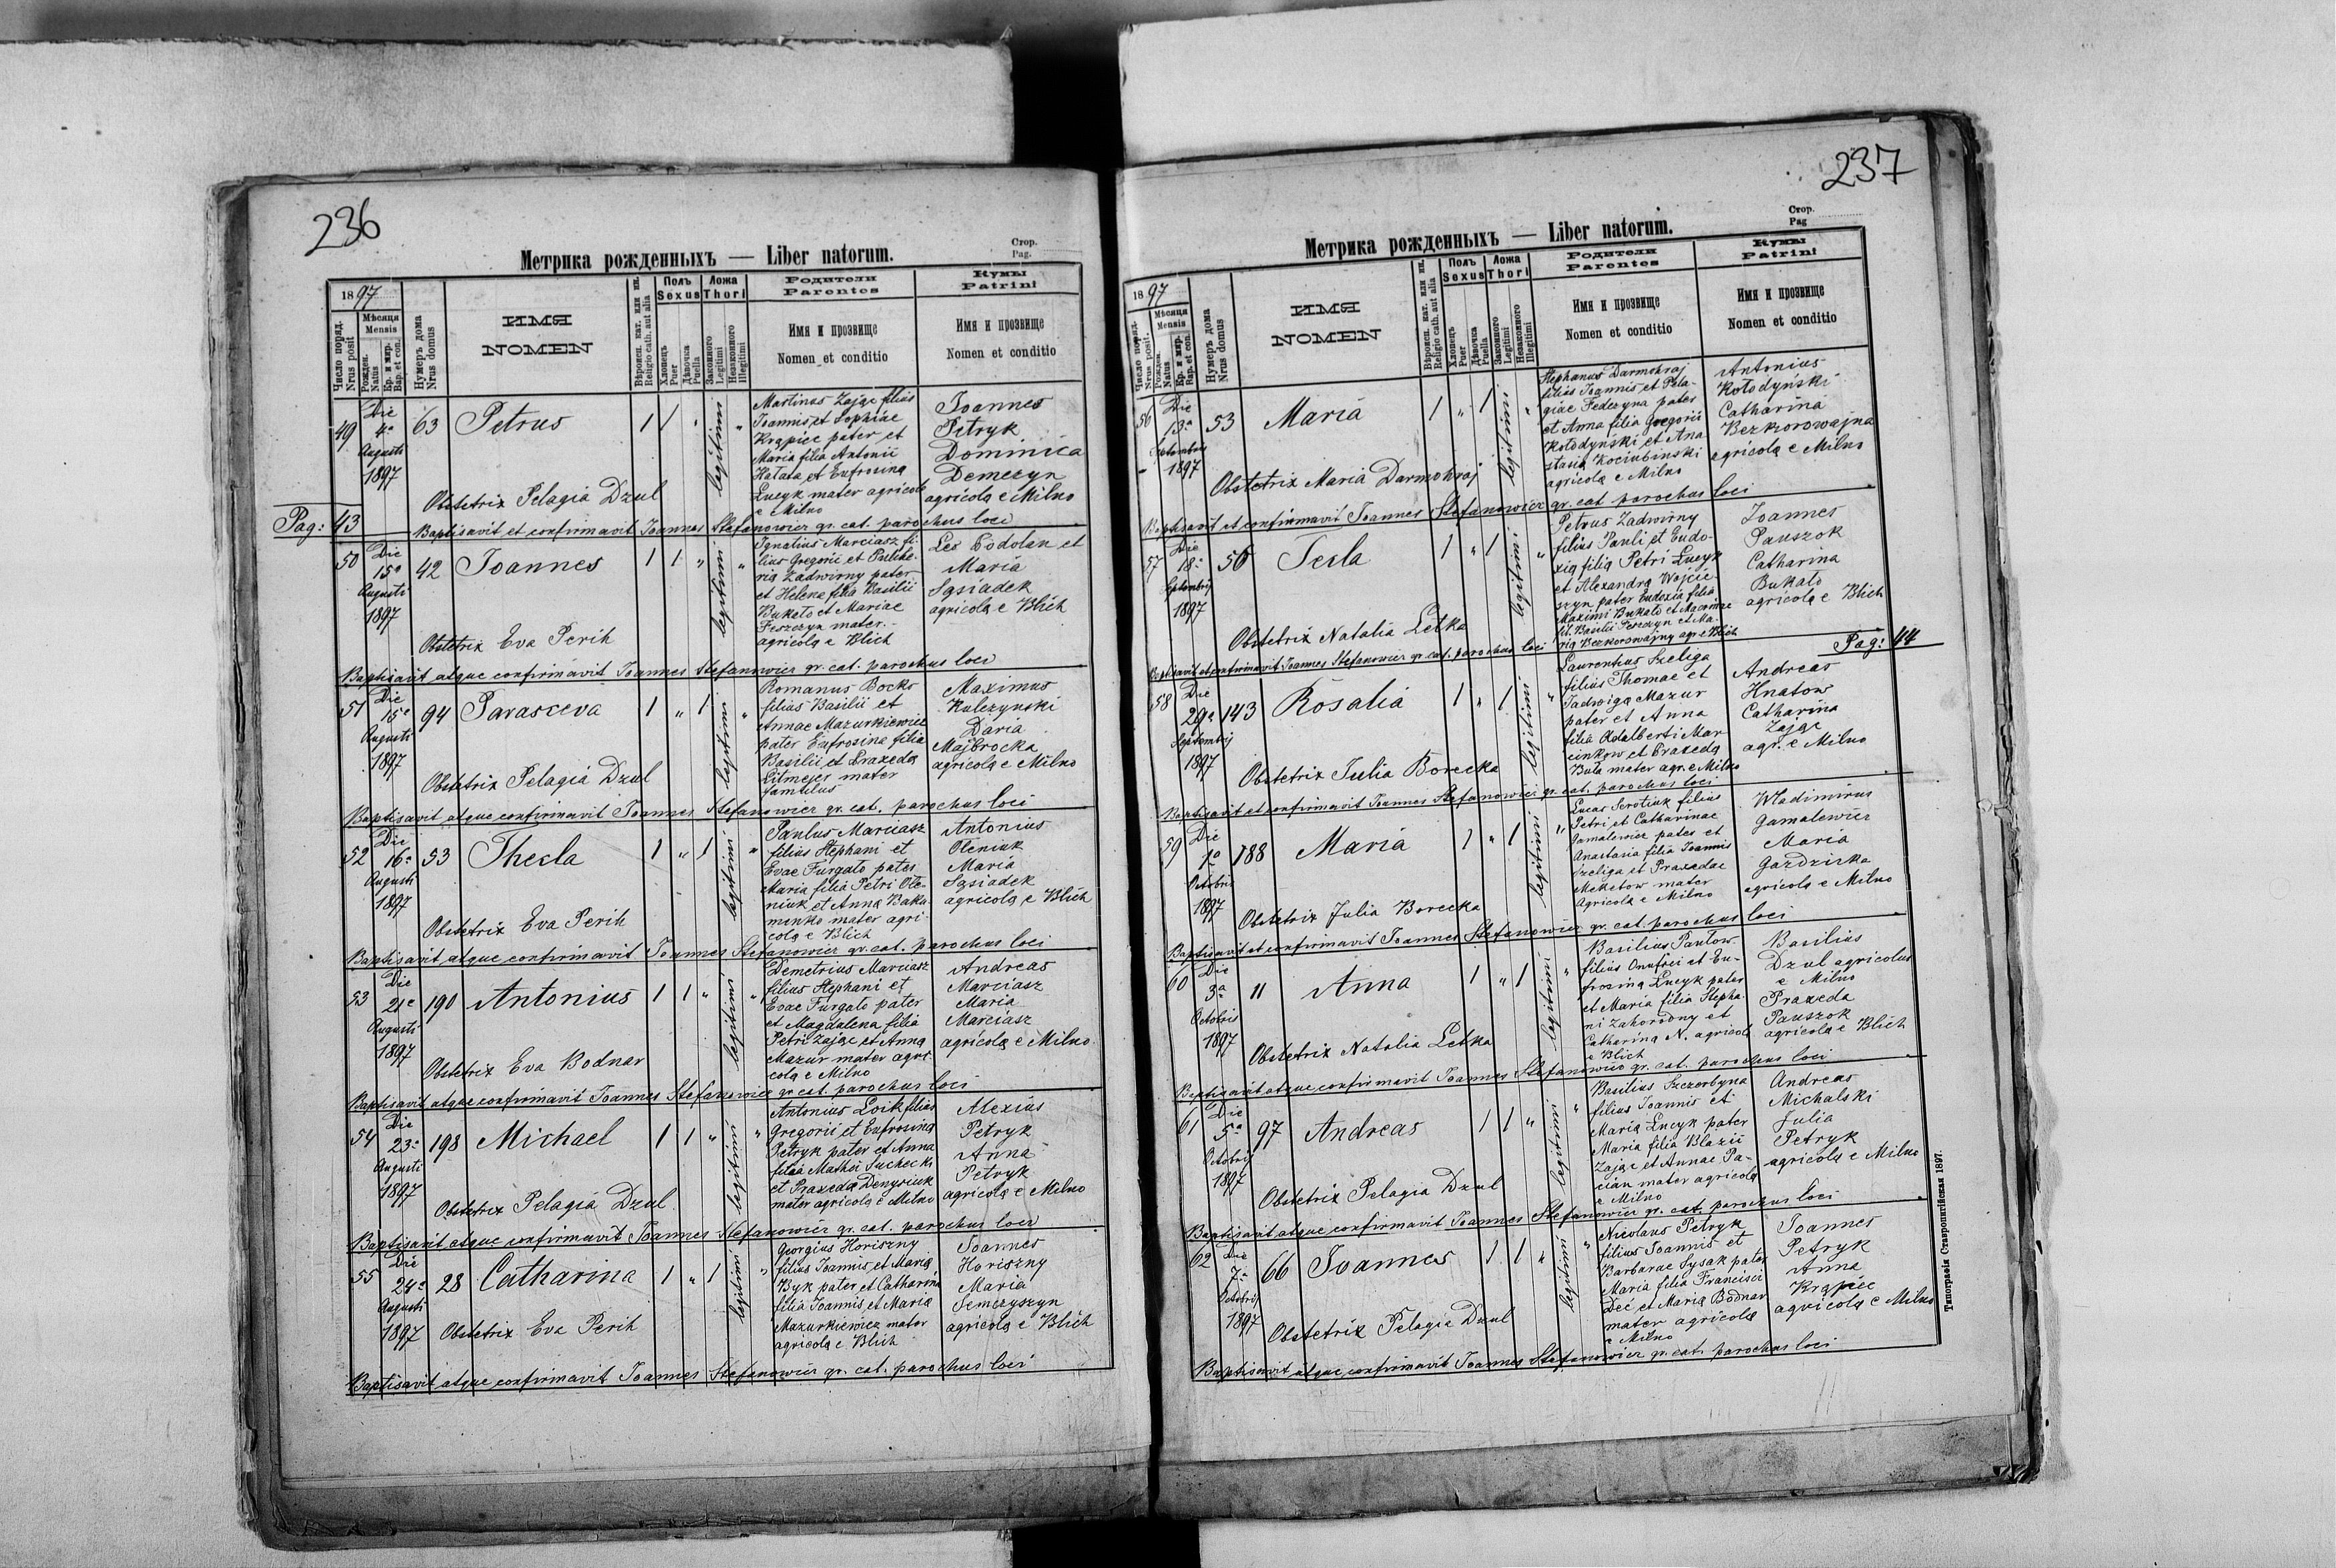 236
Стор.
Pag.
Метрика рожденныхъ — Liber natorum.
1897
Число поряд.
Nrus posit
Мѣсяця
Mensis
Рожден.
Natus
Кр. и мир.
Bap. et con.
Нумеръ дома
Nrus domus
ИМЯ
NOMEN
Вѣроисп. кат. или ин.
Religio cath. aut alia
Полъ
Sexus
Хлопець
Puer
Дѣвочка
Puella
Ложа
Thori
Законного
Legitimi
Незаконного
Illegitimi
Родители
Parentes
Имя и прозвище
Nomen et conditio
Кумы
Patrini
Имя и прозвище
Nomen et conditio
49 Die 4a Augusti 1897 63 Petrus 1 1 " legitimi "
Martinus Zając filius
Joannis et Sophiae
Krąpiec pater et
Maria filia Antonii
Hałata et Eufrosina
Łucyk mater agricola
e Milno
Joannes
Petryk
Dominica
Demczyn
agricola e Milno
Obstetrix Pelagia Dzul
Pag: 43
Baptisavit et confirmavit Joannes Stefanowicz gr. cat. parochus loci
50 Die 15a Augusti 1897 42 Joannes 1 1 " legitimi "
Ignatius Marciasz fi-
lius Gregorii et Pulche-
ria Zadwirny pater
et Helena filia Basilii
Bukato et Mariae
Feszczyn mater
agricola e Blich
Les Podolan et
Maria
Sąsiadek
agricola e Blich
Obstetrix Eva Perih
Baptisavit atque confirmavit Joannes Stefanowicz gr. cat. parochus loci
51 Die 15a Augusti 1897 94 Parasceva 1 " 1 legitimi "
Romanus Bocko
filius Basilii et
Annae Mazurkiewicz
pater Eufrosina filia
Basilii et Praxeda
Litmejer mater
famulus
Maximus
Kulczynski
Daria
Majbrocka
agricola e Milno
Obstetrix Pelagia Dzul
Baptisavit atque confirmavit Joannes Stefanowicz gr. cat. parochus loci
52 Die 16a Augusti 1897 53 Thecla 1 " 1 legitimi "
Paulus Marciasz
filius Stephani et
Evae Furgato pater
Maria filia Petri Ole-
niuk et Anna Baka-
menko mater agri-
cola e Blich
Antonius
Oleniuk
Maria
Sąsiadek
agricola e Blich
Obstetrix Eva Perih
Baptisavit atque confirmavit Joannes Stefanowicz gr. cat. parochus loci
53 Die 21a Augusti 1897 190 Antonius 1 1 " legitimi "
Demetrius Marciasz
filius Stephani et
Evae Furgato pater
et Magdalena filia
Petri Zając et Anna
Mazur mater agri-
cola e Milno
Andreas
Marciasz
Maria
Marciasz
agricola e Milno
Obstetrix Eva Bodnar
Baptisavit atque confirmavit Joannes Stefanowicz gr cat. parochus loci
54 Die 23a Augusti 1897 198 Michael 1 1 " legitimi "
Antonius Loik filius
Gregorii et Eufrosina
Petryk pater et Anna
filia Mathei Suchecki
et Praxeda Denysiuk
mater agricola e Milno
Alexius
Petryk
Anna
Petryk
agricola e Milno
Obstetrix Pelagia Dzul
Baptisavit atque confirmavit Joannes Stefanowicz gr. cat. parochus loci
55 Die 24a Augusti 1897 28 Catharina 1 " 1 legitimi "
Georgius Horiszny
filius Joannis et Maria
Byk pater et Catharina
filia Joannis et Maria
Mazurkiewicz mater
agricola e Blich
Joannes
Horiszny
Maria
Semczyszyn
agricola e Blich
Obstetrix Eva Perih
Baptisavit atque confirmavit Joannes Stefanowicz gr. cat. parochus loci
237
Стор.
Pag
Метрика рожденныхъ — Liber natorum.
1897
Число поряд.
Nrus posit.
Мѣсяця
Mensis
Рожден.
Natus
Кр. и мир.
Bap. et con.
Нумеръ дома
Nrus domus
ИМЯ
NOMEN
Вѣроисп. кат. или ин.
Religio cath. aut alia
Полъ
Sexus
Хлопець
Puer
Дѣвочка
Puella
Ложа
Thori
Законного
Legitimi
Незаконного
Illegitimi
Родители
Parentes
Имя и прозвище
Nomen et conditio
Кумы
Patrini
Имя и прозвище
Nomen et conditio
56 Die 13a Septembris 1897 53 Maria 1 " 1 legitimi "
Stephanus Darmohraj
filius Joannis et Pela-
giae Fedczyna pater
et Anna filia Gregorii
Kołodyński et Ana
stasia Kociubinski
agricola e Milno
Antonius
Kołodyński
Catharina
Bezkorowajna
agricola e Milno
Obstetrix Maria Darmohraj
Baptisavit et confirmavit Joannes Stefanowicz gr. cat. parochus loci
57 Die 18a Septembris 1897 56 Tecla 1 " 1 legitimi "
Petrus Zadwirny
filius Pauli et Eudo-
xia filia Petri Łucyk
et Alexandra Wojcie-
szyn pater Eudoxia filia
Maximi Bukato et Macrinae
fil. Basilii Feszczyn et Ma-
ria Bezkorowajny agr. e Blich
Joannes
Pauszok
Catharina
Bukato
agricola e Blich
Obstetrix Natalia Letka
Baptisavit et confirmavit Joannes Stefanowicz gr. cat. parochus loci
Pag: 44
58 Die 29a Septembrij 1897 143 Rosalia 1 " 1 legitimi "
Laurentius Szeliga
filius Thomae et
Jadwiga Mazur
pater et Anna
filia Adalberti Mar
cinkow et Praxeda
Buła mater agr. e Milno
Andreas
Hnatow
Catharina
Zając
agr. e Milno
Obstetrix Julia Borecka
Baptisavit et confirmavit Joannes Stefanowicz gr. cat. parochus loci
59 Die 1a Octobris 1897 188 Maria 1 " 1 legitimi "
Lucas Serotiuk filius
Petri et Catharinae
Gamalewicz pater et
Anastasia filia Joannis
Szeliga et Praxedae
Meketow mater
Agricola e Milno
Wladimirus
Gamalewicz
Maria
Gazdzicka
agricola e Milno
Obstetrix Julia Borecka
Baptisavit et confirmavit Joannes Stefanowicz gr. cat. parochus loci
60 Die 3a Octobris 1897 11 Anna 1 " 1 legitimi "
Basilius Pantow
filius Onufrei et Eu-
frosina Łucyk pater
et Maria filia Stepha-
ni Zahorodny et
Catharina N. agricola
e Blich
Basilius
Dzul agricolus
e Milno
Praxeda
Pauszok
agricola e Blich
Obstetrix Natalia Letka
Baptisavit atque confirmavit Joannes Stefanowicz gr. cat. parochus loci
61 Die 5a Octobrij 1897 97 Andreas 1 1 " legitimi "
Basilius Szczerbyna
filius Joannis et
Maria Łucyk pater
Maria filia Blazii
Zając et Annae Pa-
cian mater agricola
e Milno
Andreas
Michalski
Julia
Petryk
agricola e Milno
Obstetrix Pelagia Dzul
Baptisavit atque confirmavit Joannes Stefanowicz gr. cat. parochus loci
62 Die 7a Octobrij 1897 66 Joannes 1 1 " legitimi "
Nicolaus Petryk
filius Joannis et
Barbarae Sysak pater
Maria filia Francisci
Deć et Maria Bodnar
mater agricola
e Milno
Joannes
Petryk
Anna
Krąpiec
agricola e Milno
Obstetrix Pelagia Dzul
Baptisavit atque confirmavit Joannes Stefanowicz gr. cat. parochus loci
Типографія Ставропигійская 1897.